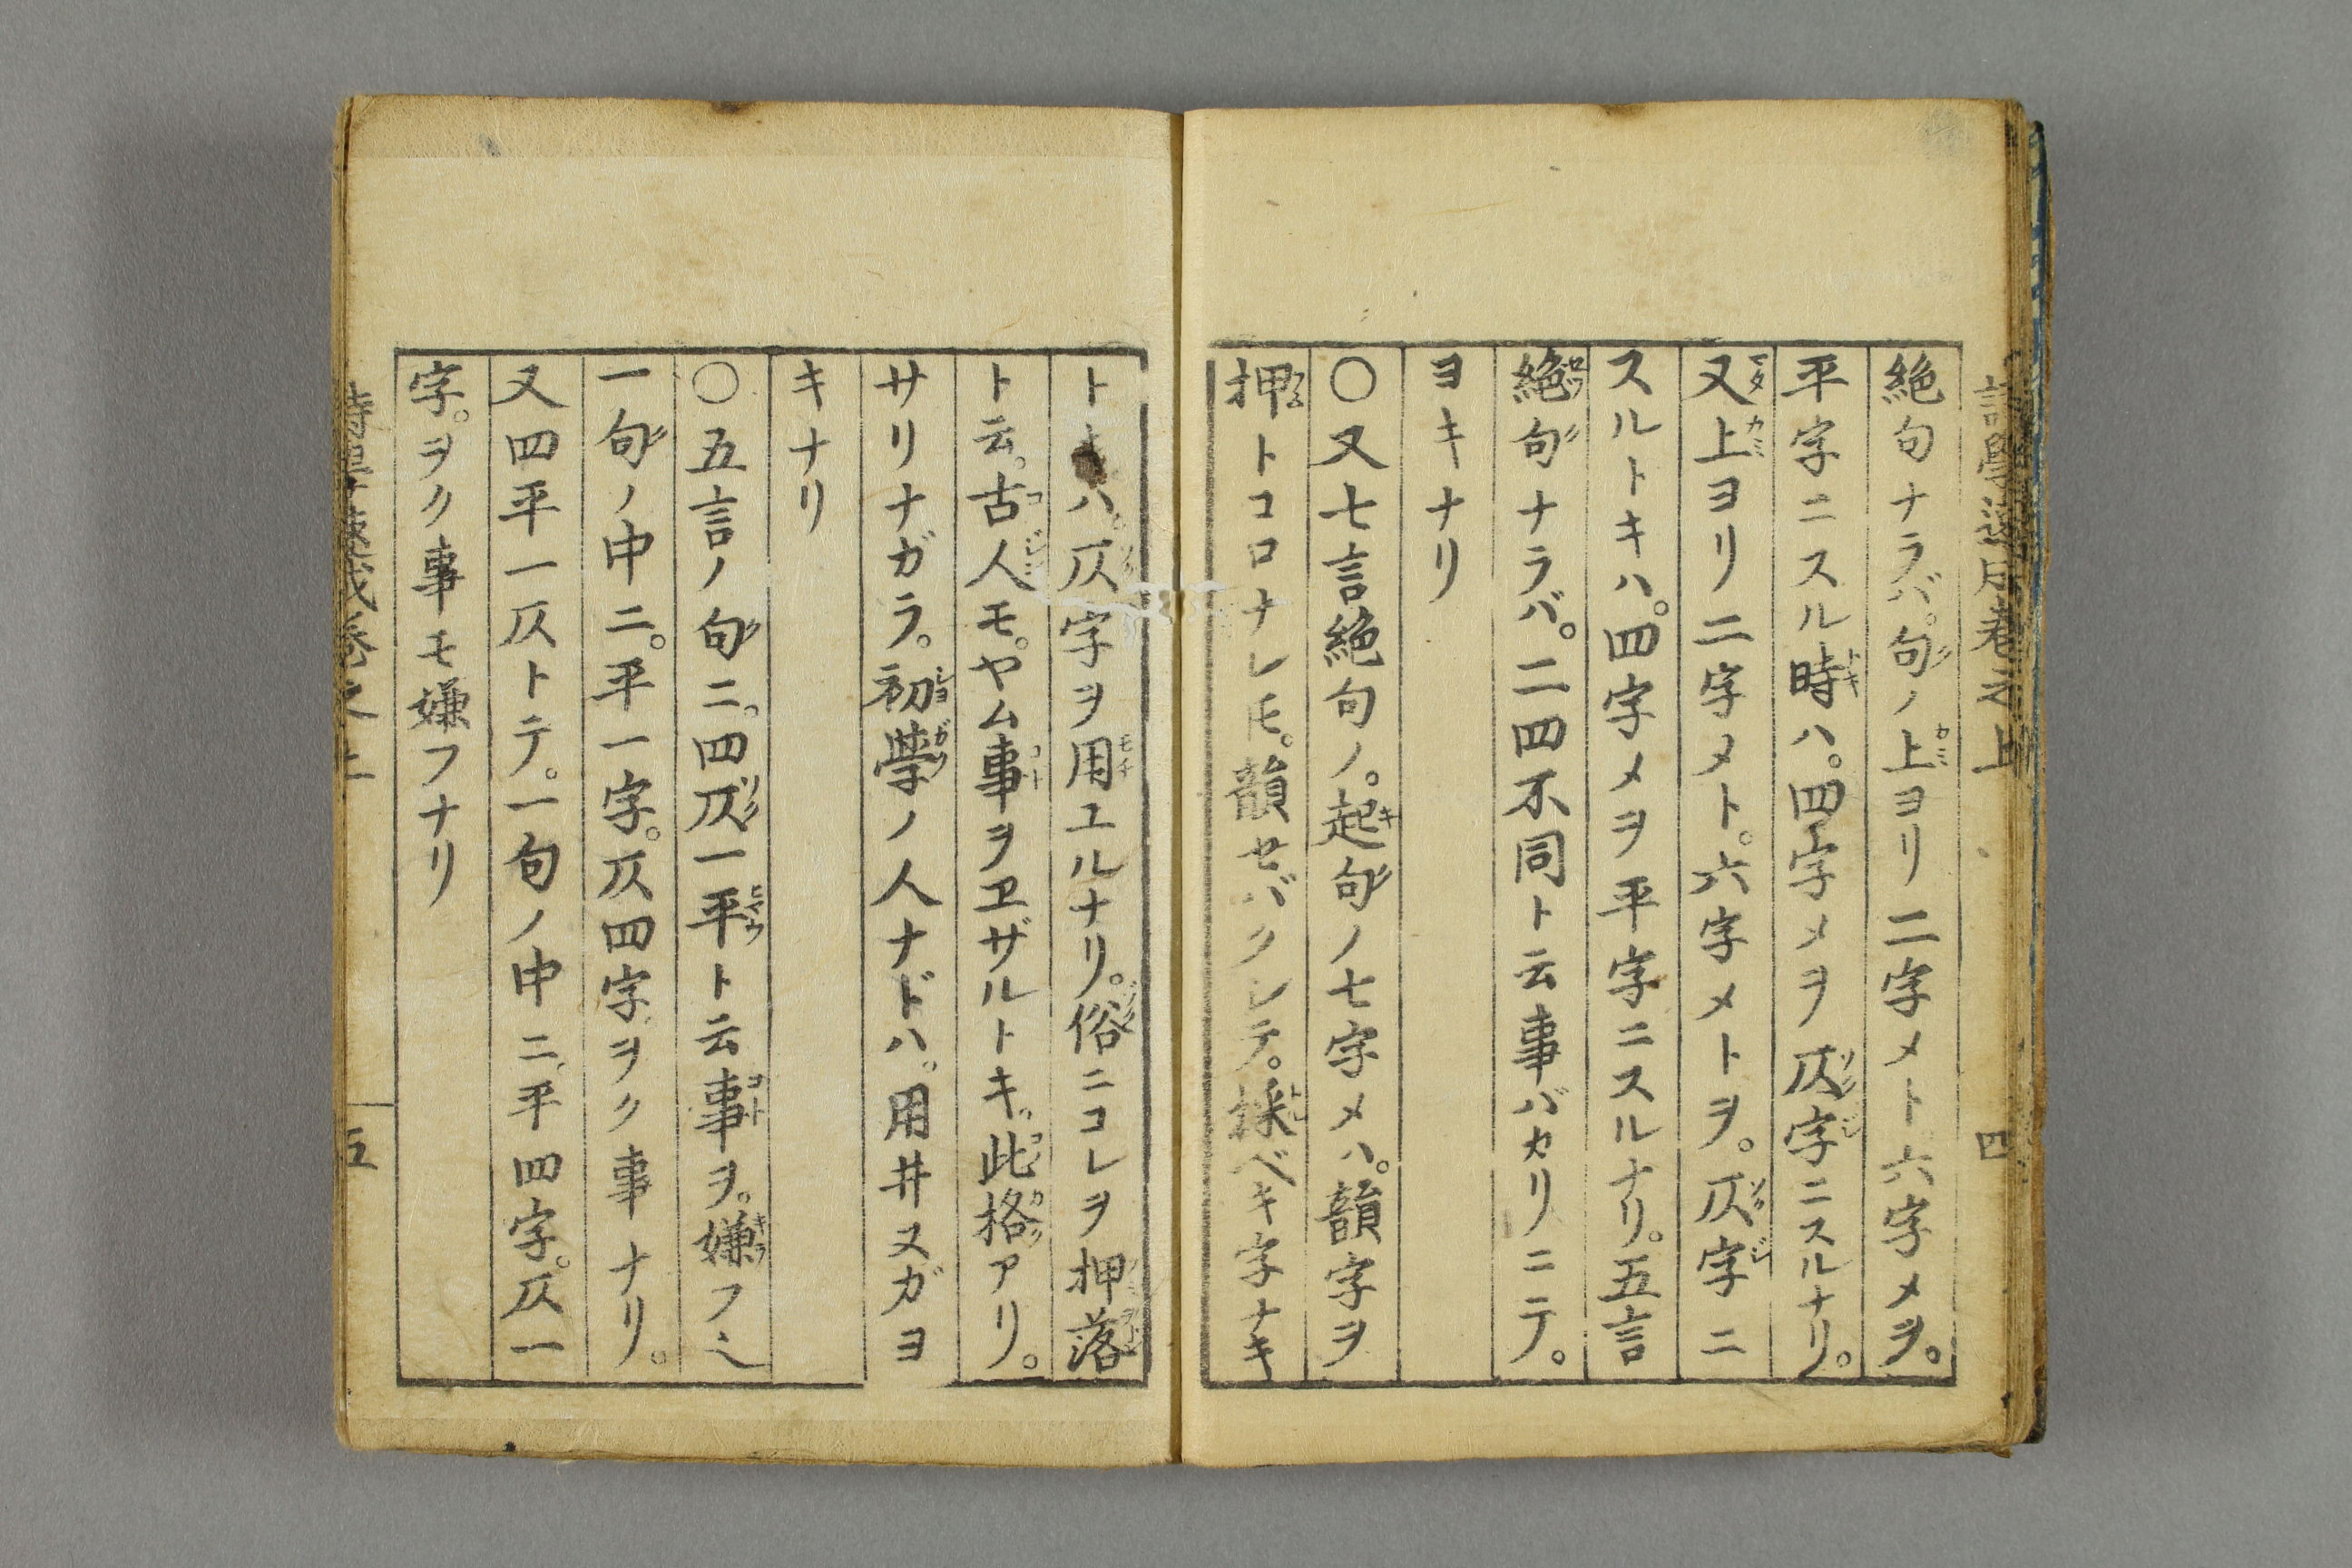 絶句ナラバ。句ノ上ヨリ二字メト六字メヲ。
平字ニスル時ハ。四字メヲ仄字ニスルナリ。
又上ヨリ二字メト。六字メトヲ。仄字ニ
スルトキハ。四字メヲ平字ニスルナリ。五言
絶句ナラバ。二四不同ト云事バカリニテ。
ヨキナリ
〇又七言絶句ノ。起句ノ七字メハ。韻字ヲ
押トコロナレ𪜈。韻セバクシテ。採ベキ字ナキ
四
トキハ。仄字ヲ用ユルナリ。俗ニコレヲ押落
ト云。古人モ。ヤム事ヲヱザルトキ。此格アリ。
サリナガラ。初學ノ人ナドハ。用井ヌガヨ
キナリ
〇五言ノ句ニ。四仄一平ト云事ヲ。嫌フ
一句ノ中ニ。平一字。仄四字ヲク事ナリ。
又四平一仄トテ。一句ノ中ニ。平四字。仄一
字。ヲク事モ嫌フナリ
五